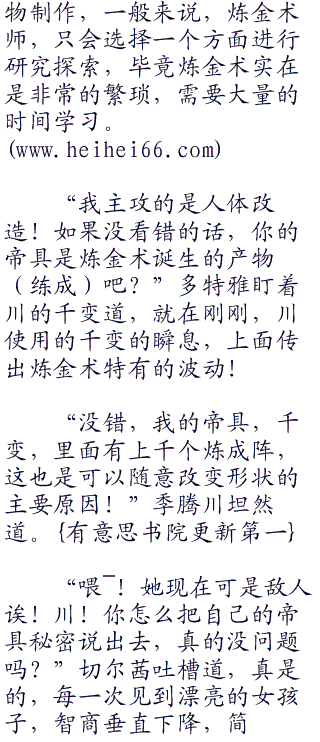 物制作，一般来说，炼金术
师，只会选择一个方面进行
研究探索，毕竟炼金术实在
是非常的繁琐，需要大量的
时间学习。
(www.heihei66.com)
“我主攻的是人体改
造！如果没看错的话，你的
帝具是炼金术诞生的产物
（练成）吧？”多特雅盯着
川的千变道，就在刚刚，川
使用的千变的瞬息，上面传
出炼金术特有的波动！
“没错，我的帝具，千
变，里面有上千个炼成阵，
这也是可以随意改变形状的
主要原因！”季腾川坦然
道。{有意思书院更新第一}
“喂¯！她现在可是敌人
诶！川！你怎么把自己的帝
具秘密说出去，真的没问题
吗？”切尔茜吐槽道，真是
的，每一次见到漂亮的女孩
子，智商垂直下降，简